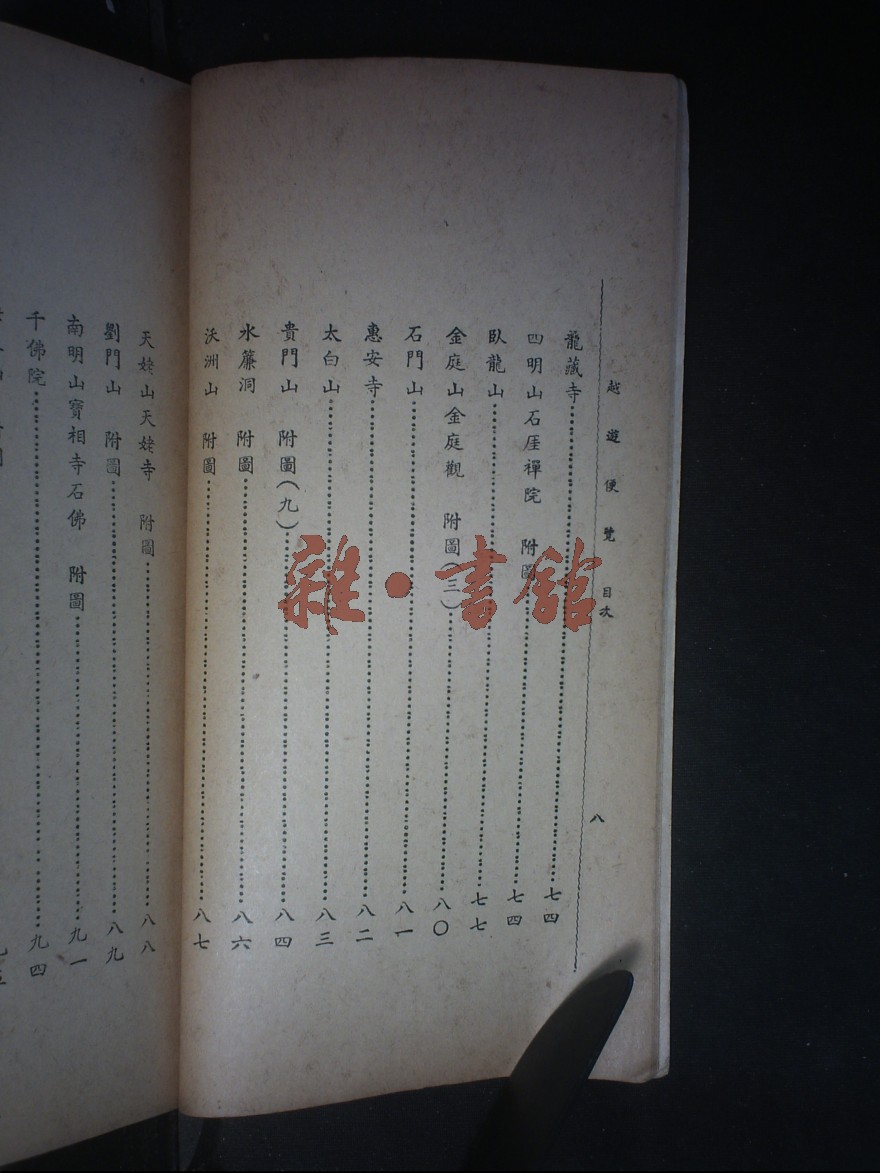 越遊便覽 目次
八
龍藏寺……七四
四明山石厓禪院 附圖……七四
臥龍山……七七
金庭山金庭觀 附圖(三)……八〇
石門山……八一
惠安寺……八二
太白山……八三
貴門山 附圖(九)……八四
水簾洞 附圖……八六
沃洲山 附圖……八七
天姥山天姥寺 附圖……八八
劉門山 附圖……八九
南明山寶相寺石佛 附圖……九一
千佛院……九四
雜·書館